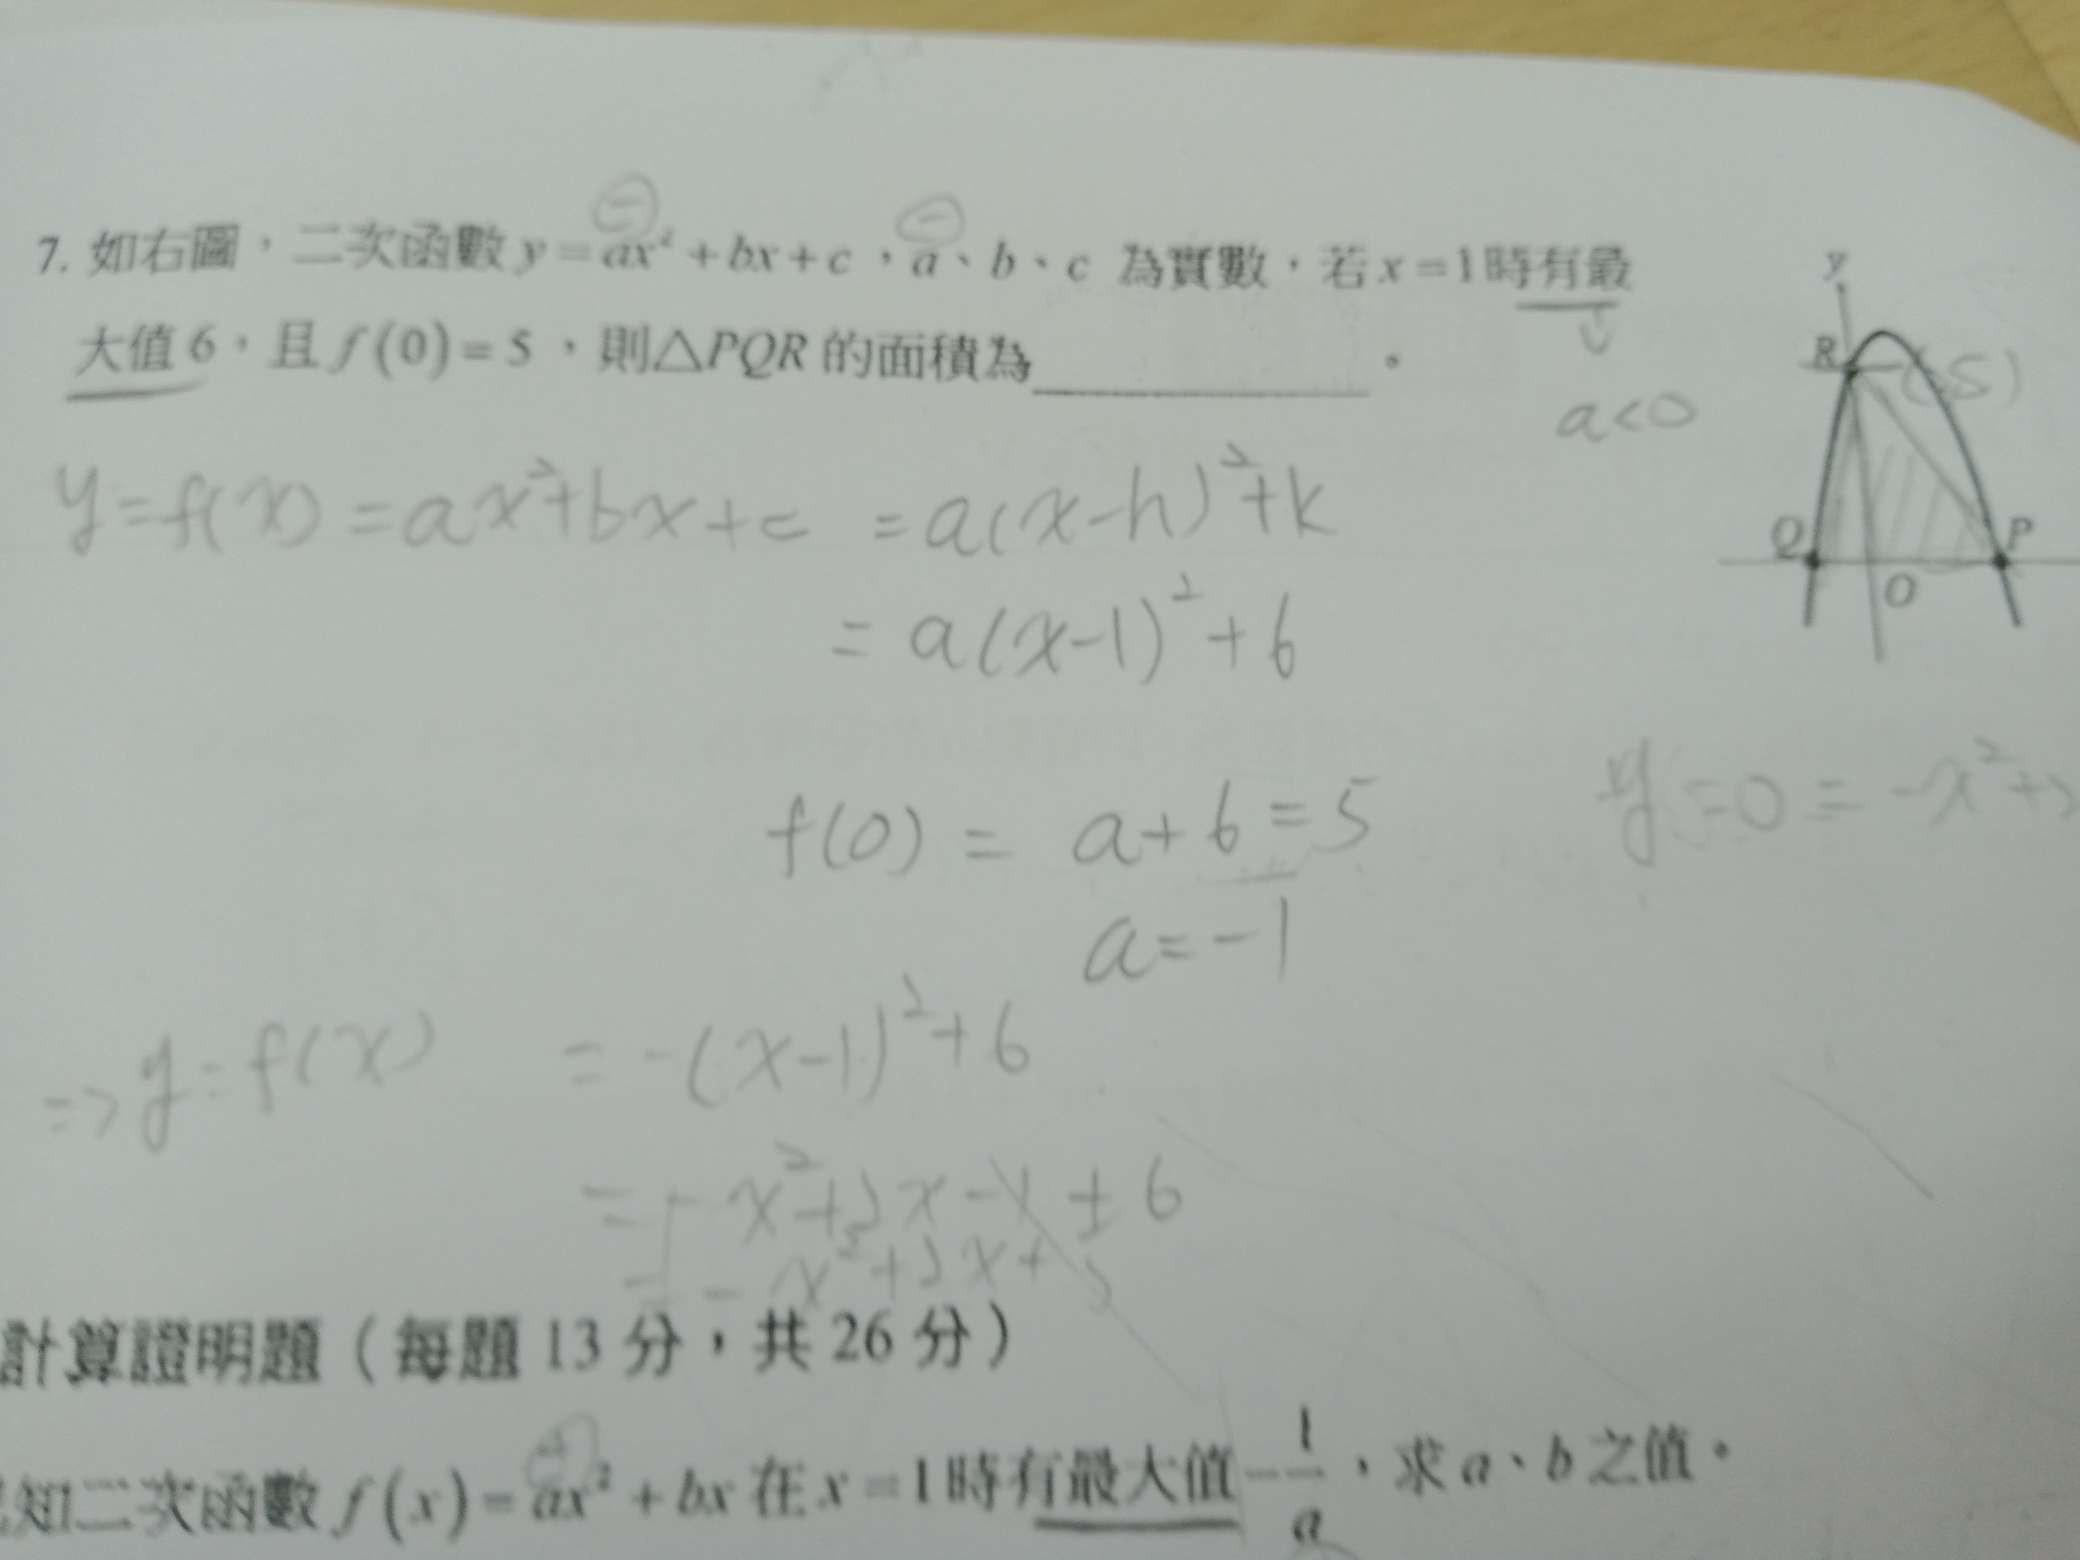 7. 如右圖，二次函數 y=ax²+bx+c，a、b、c 為實數，若 x=1時有最
大值 6，且 f(0)=5，則△PQR 的面積為______。
⊖
⊖
a<0
y
R
(5)
Q
P
O
y=f(x)=ax²+bx+c =a(x-h)²+k
=a(x-1)²+6
f(0) = a+6=5
y=0=-x²+
a=-1
=>y=f(x) =-(x-1)²+6
=-x²+2x-1+6
=-x²+2x+5
計算證明題（每題 13 分，共 26 分）
知二次函數 f(x)=ax²+bx 在 x=1時有最大值-1/a，求 a、b 之值。